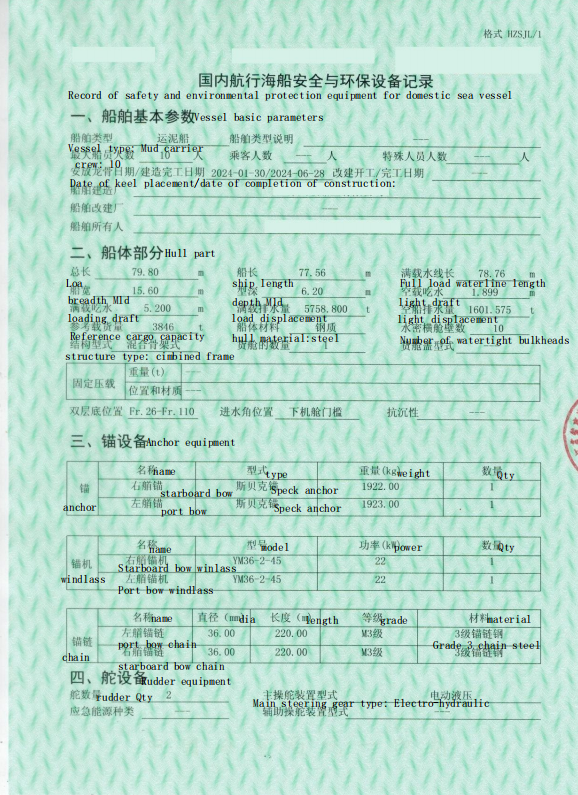 格式 HZSJL/1
国内航行海船安全与环保设备记录
Record of safety and environmental protection equipment for domestic sea vessel
一、船舶基本参数 Vessel basic parameters
船舶类型 运泥船 船舶类型说明 ---
Vessel type: Mud carrier
最大船员人数 10 人 乘客人数 --- 人 特殊人员人数 --- 人
crew: 10
安放龙骨日期/建造完工日期 2024-01-30/2024-06-28 改建开工/完工日期 ---
Date of keel placement/date of completion of construction:
船舶建造厂
船舶改建厂 ---
船舶所有人
二、船体部分 Hull part
总长 79.80 m 船长 77.56 m 满载水线长 78.76 m
Loa ship length Full load waterline length
船宽 15.60 m 型深 6.20 m 空载吃水 1.899 m
breadth Mld depth Mld light draft
满载吃水 5.200 m 满载排水量 5758.800 t 空船排水量 1601.575 t
loading draft load displacement light displacement
参考载货量 3846 t 船体材料 钢质 水密横舱壁数 10
Reference cargo capacity hull material:steel Number of watertight bulkheads
结构型式 混合骨架式 货舱的数量 1 货舱盖型式 ---
structure type: cimbined frame
固定压载 重量(t) ---
位置和材质 ---
双层底位置 Fr.26-Fr.110 进水角位置 下机舱门槛 抗沉性 ---
三、锚设备 Anchor equipment
名称 name 型式 type 重量(kg) weight 数量 Qty
锚 右艏锚 斯贝克锚 1922.00 1
starboard bow Speck anchor
anchor 左艏锚 斯贝克锚 1923.00 1
port bow Speck anchor
名称 name 型号 model 功率(kW) power 数量 Qty
锚机 右艏锚机 YM36-2-45 22 1
Starboard bow winlass
windlass 左艏锚机 YM36-2-45 22 1
Port bow windlass
名称 name 直径(mm) dia 长度(m) length 等级 grade 材料 material
锚链 左艏锚链 36.00 220.00 M3级 3级锚链钢
port bow chain Grade 3 chain steel
chain 右艏锚链 36.00 220.00 M3级 3级锚链钢
starboard bow chain
四、舵设备 Rudder equipment
舵数量 2 主操舵装置型式 电动液压
rudder Qty Main steering gear type: Electro-hydraulic
应急能源种类 --- 辅助操舵装置型式 ---